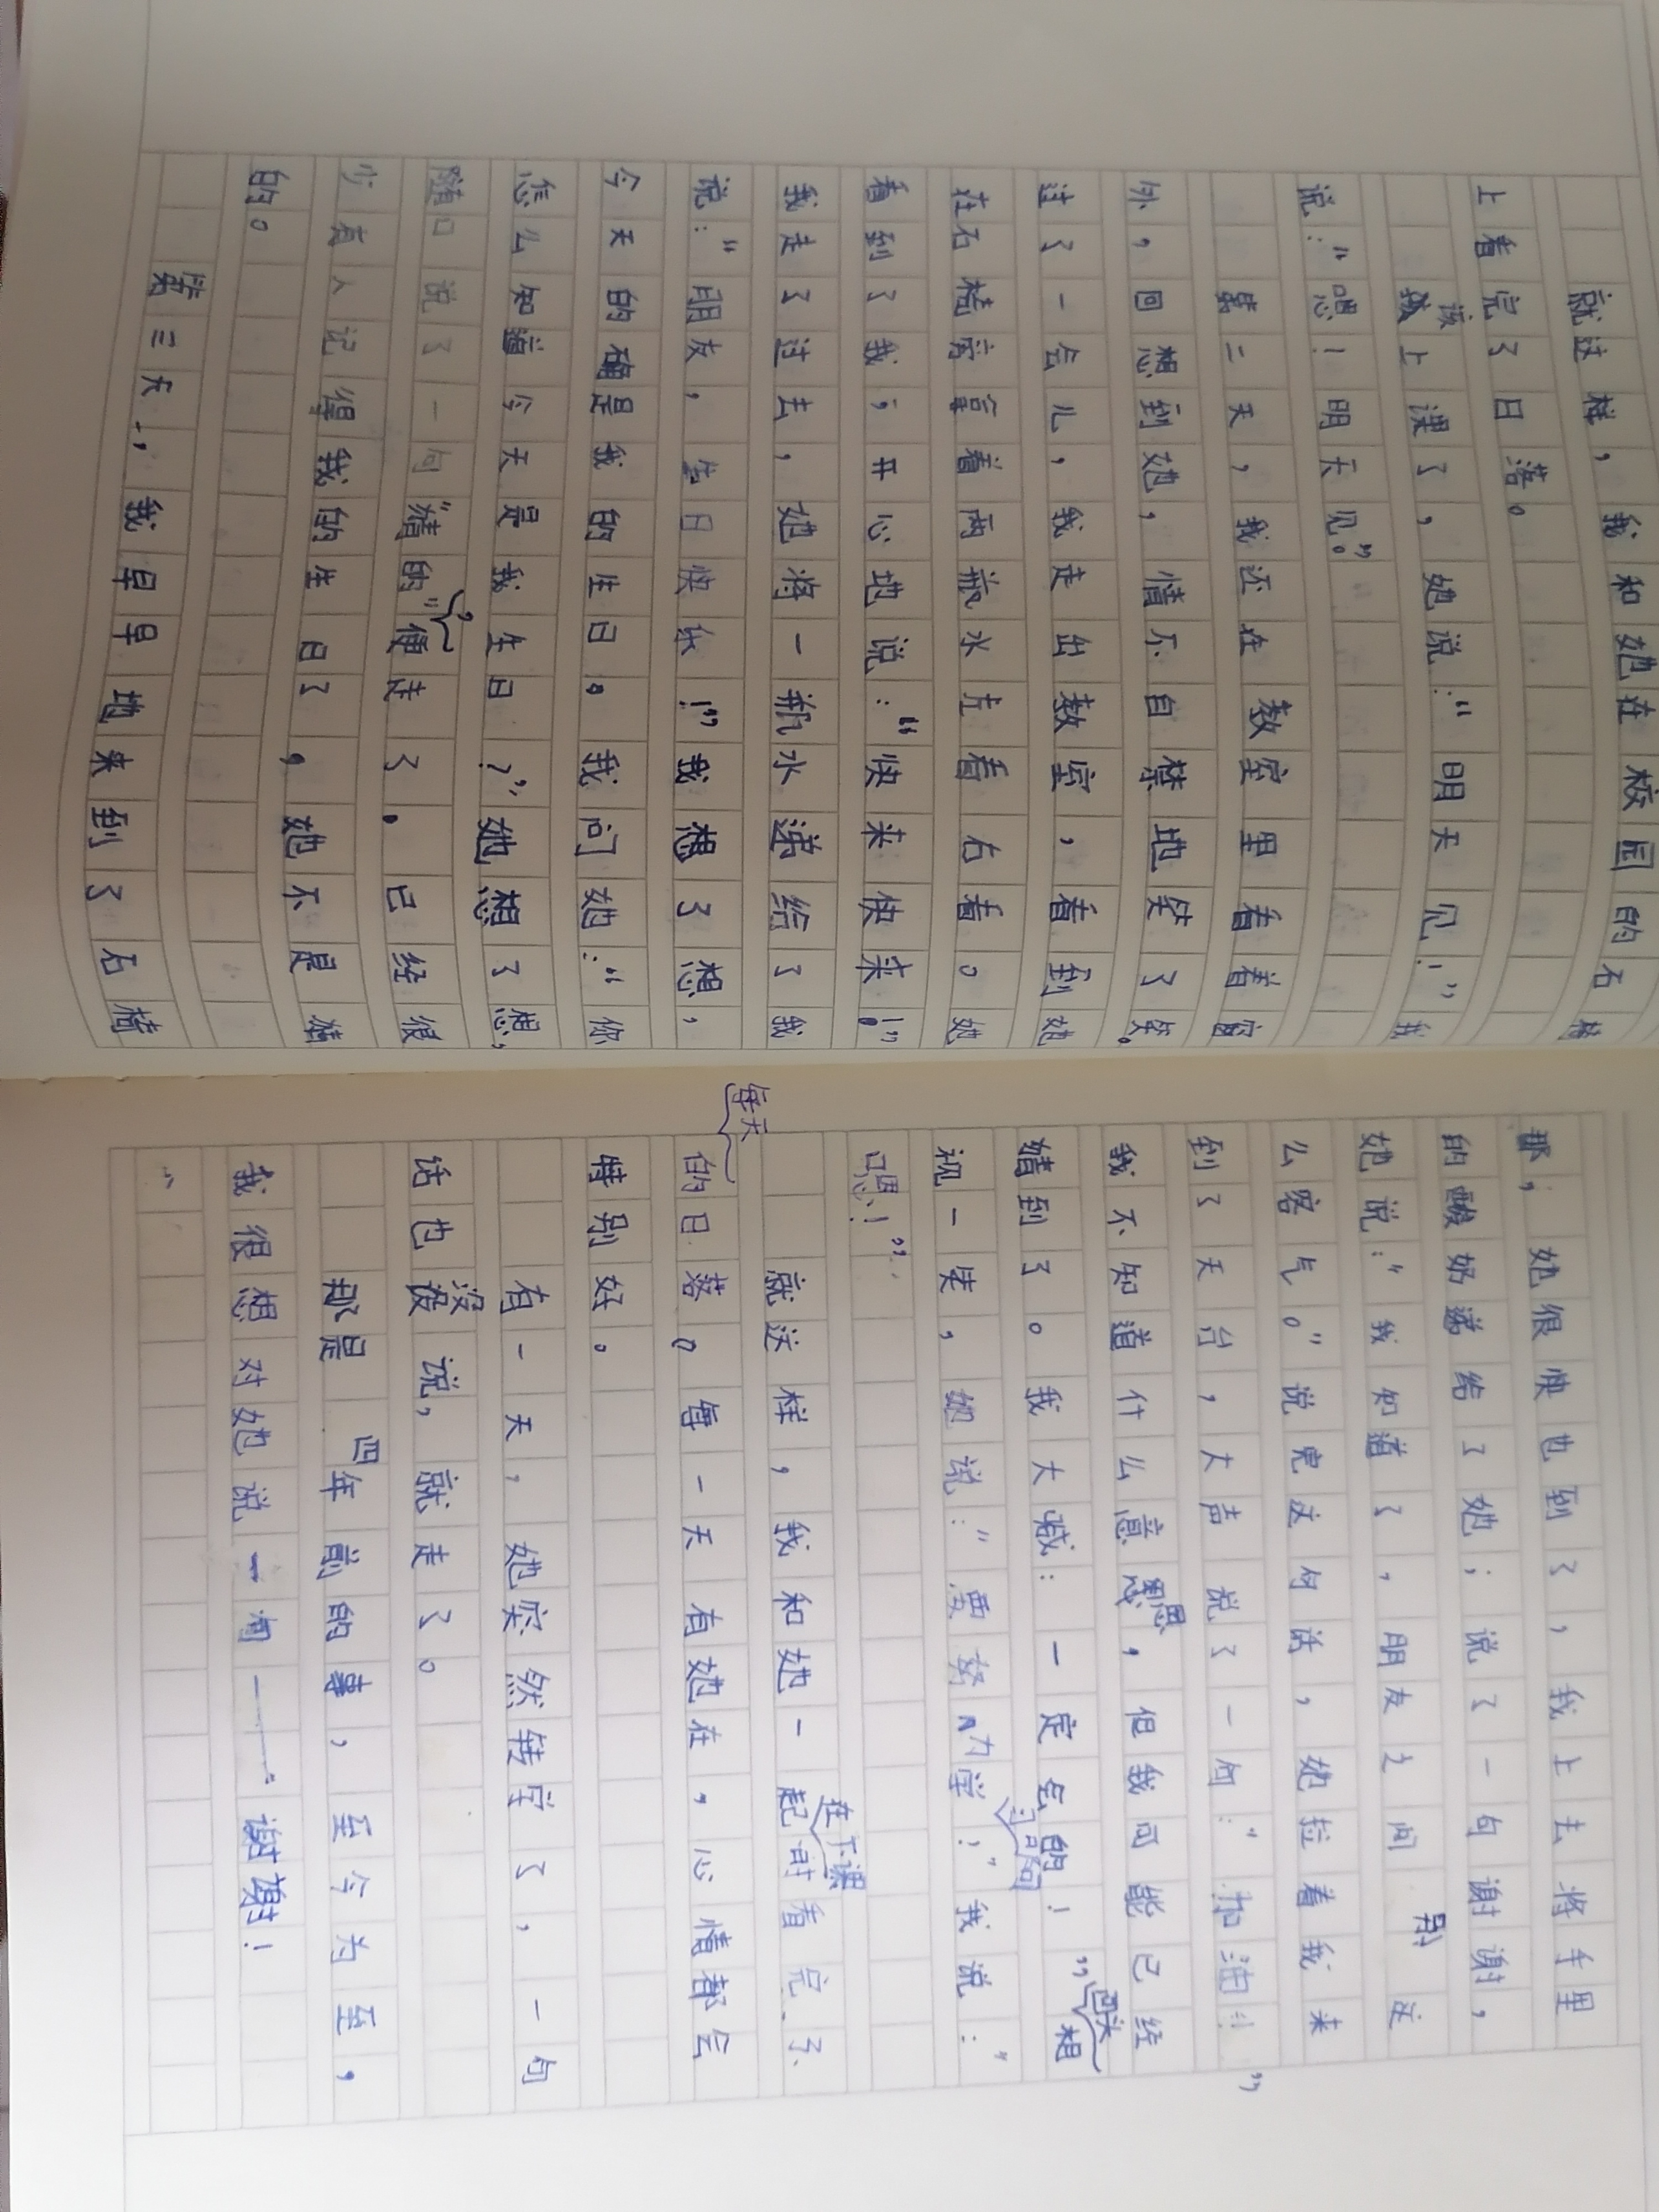 就这样，我和她在校园的石椅
上看完了日落。
该上课了，她说：“明天见！”我
说：“嗯！明天见。”
第二天，我还在教室里看着窗
外，回想到她，情不自禁地笑了笑。
过了一会儿，我走出教室，看到她
在石椅旁拿着两瓶水左看右看。她
看到了我；开心地说：“快来快来！”
我走了过去，她将一瓶水递给了我
说：“朋友，生日快乐！”我想了想，
今天的确是我的生日。我问她：“你
怎么知道今天是我生日？”她想了想，
随口说了一句“猜的”，便走了。已经很
少有人记得我的生日了，她不是猜
的。
第三天，我早早地来到了石椅
那，她很快也到了，我上去将手里
的酸奶递给了她；说了一句谢谢，
她说：“我知道了，朋友之间别这
么客气。”说完这句话，她拉着我来
到了天台，大声说了一句：“加油！！”
我不知道什么意思，但我可能已经
猜到了。我大喊：一定会的！”相
视一笑，她说：“要努力学习，”我说：“
嗯！”
就这样，我和她一起在下课时看完了
每天的日落。每一天有她在，心情都会
特别好。
有一天，她突然转学了，一句
话也没说，就走了。
那是四年前的事，至今为至，
我很想对她说一句——谢谢！
”